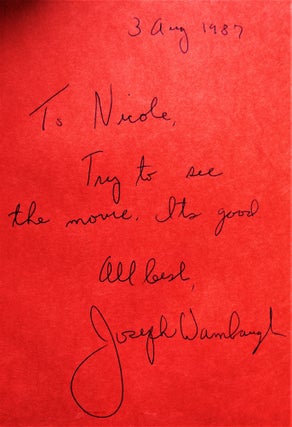 3 Aug 1987
To Nicole,
Try to see
the movie. Its good
All best,
Joseph Wambaugh